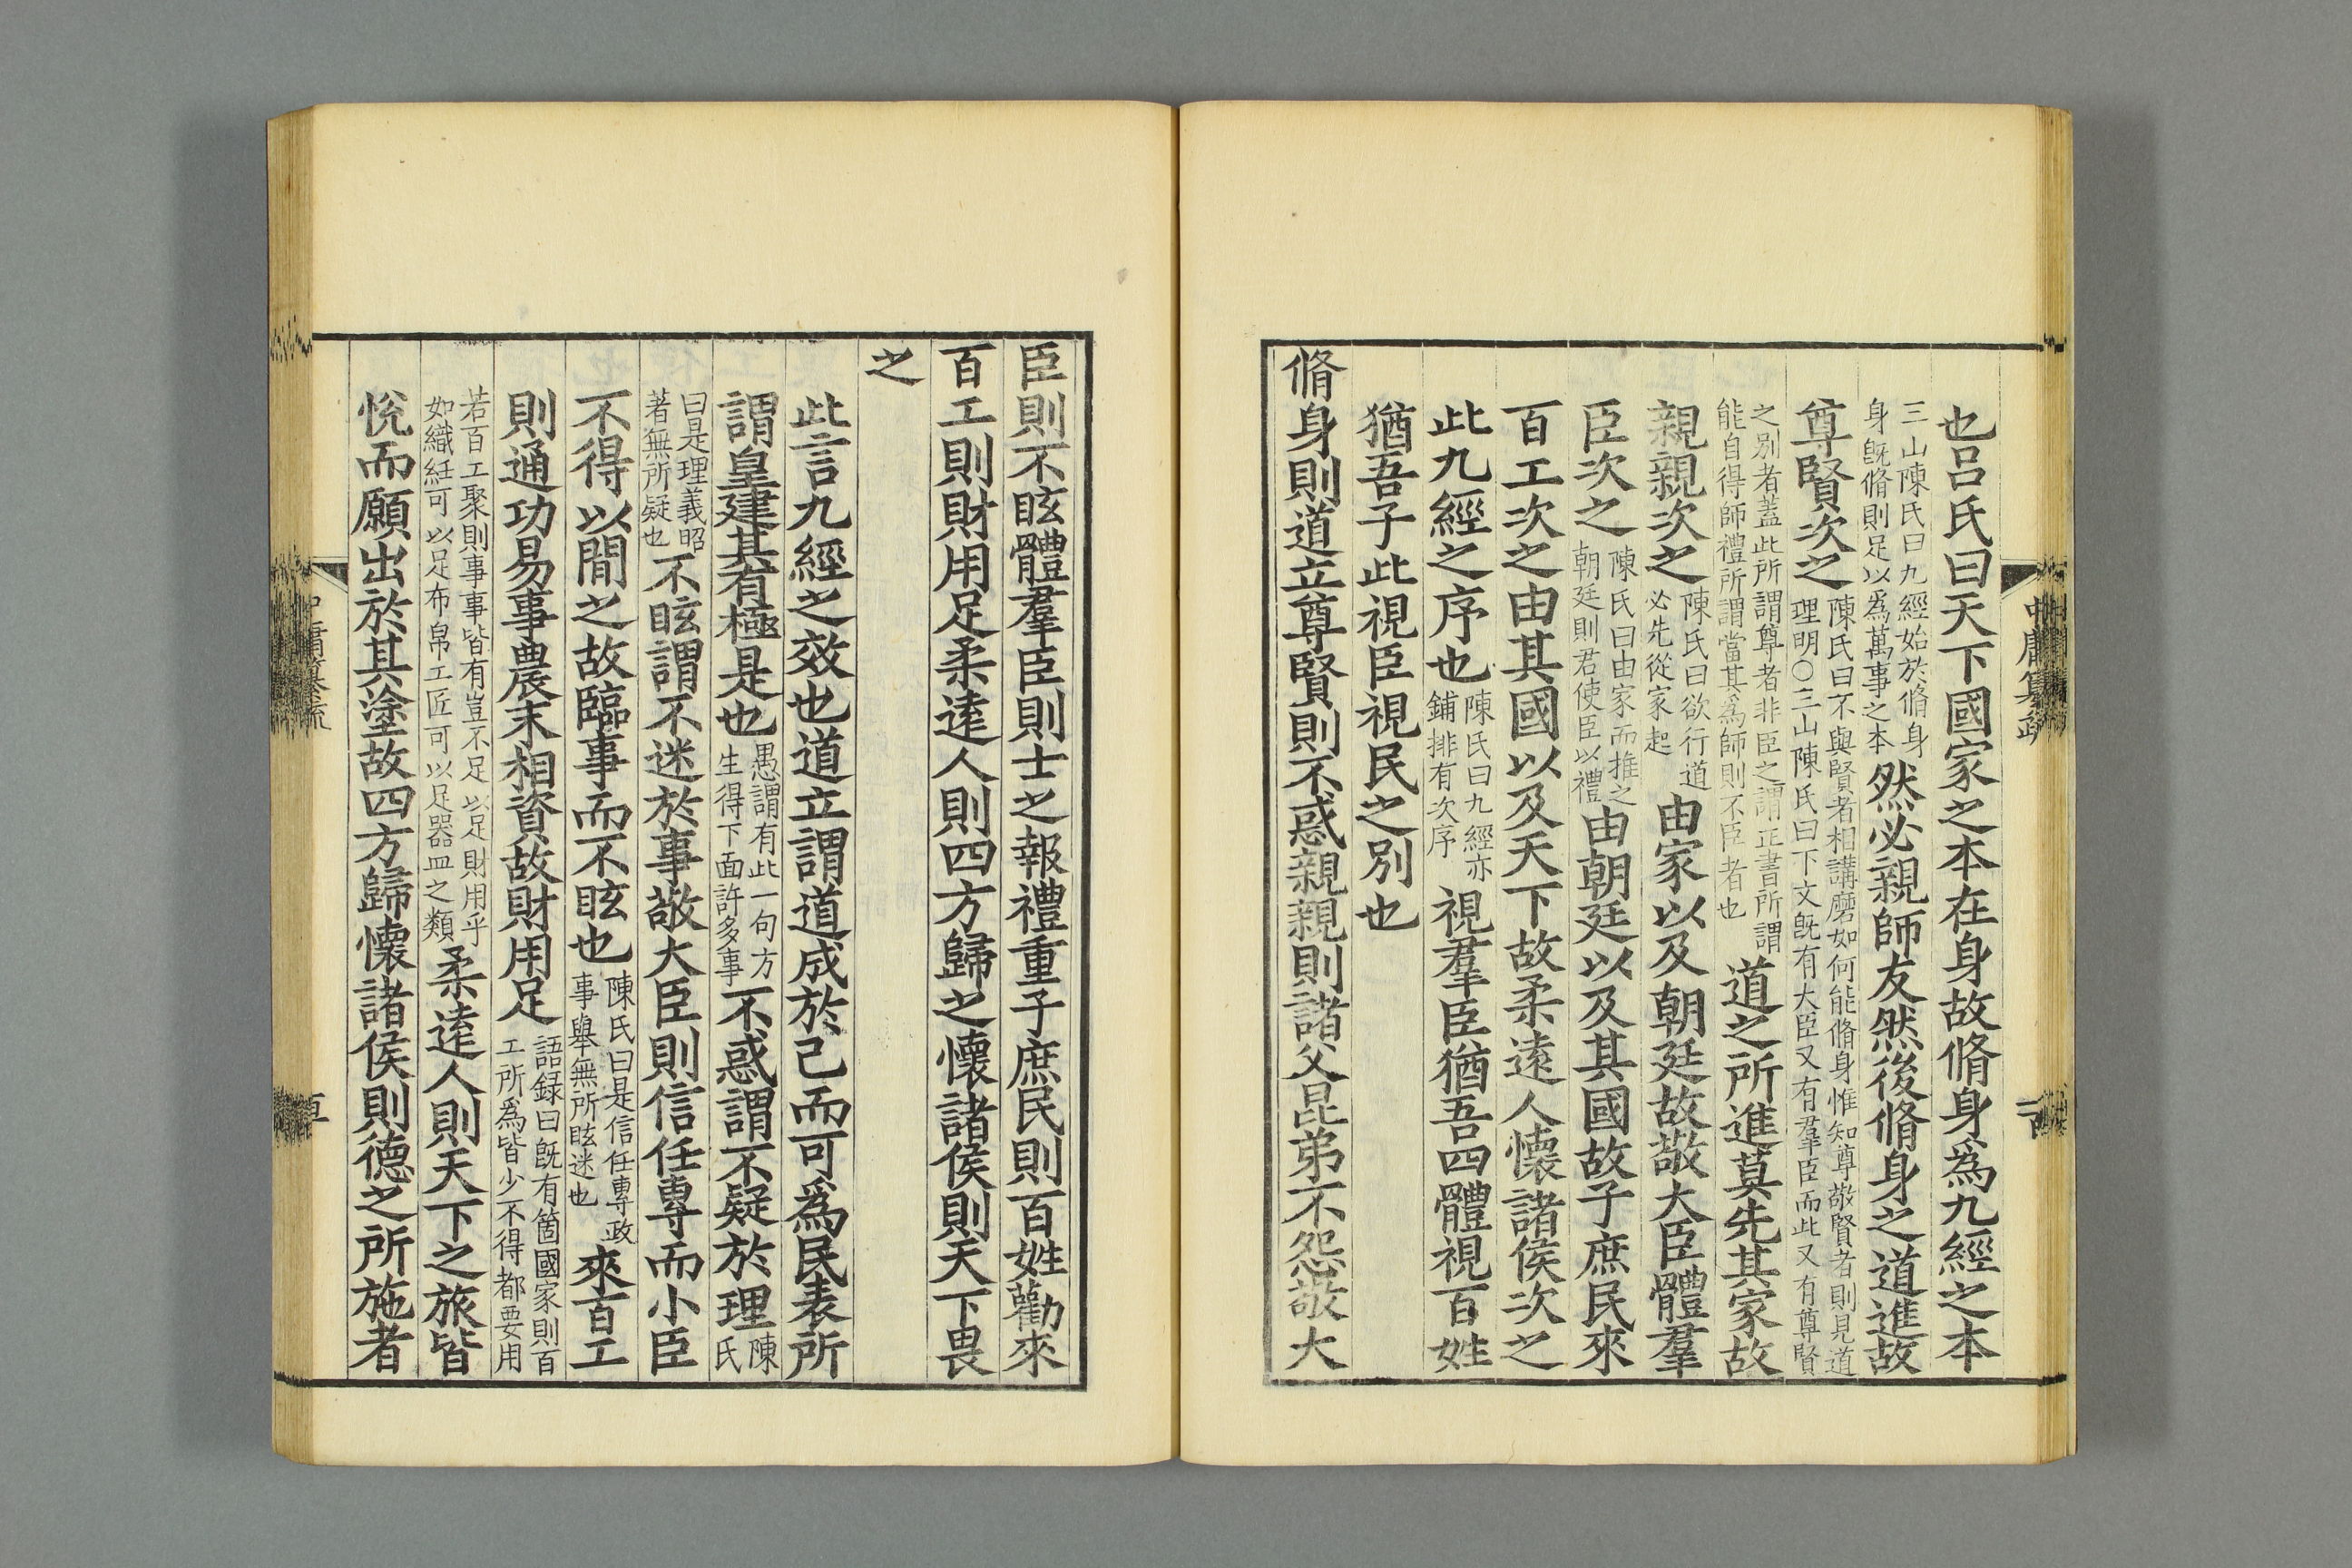 也呂氏曰天下國家之本在身故脩身爲九經之本
三山陳氏曰九經始於脩身
身旣脩則足以爲萬事之本
然必親師友然後脩身之道進故
尊賢次之
陳氏曰不與賢者相講磨如何能脩身惟知尊敬賢者則見道
理明○三山陳氏曰下文旣有大臣又有羣臣而此又有尊賢
之別者蓋此所謂尊者非臣之謂正書所謂
能自得師禮所謂當其爲師則不臣者也
道之所進莫先其家故
親親次之
陳氏曰欲行道
必先從家起
由家以及朝廷故敬大臣體羣
臣次之
陳氏曰由家而推之
朝廷則君使臣以禮
由朝廷以及其國故子庶民來
百工次之由其國以及天下故柔遠人懷諸侯次之
此九經之序也
陳氏曰九經亦
鋪排有次序
視羣臣猶吾四體視百姓
猶吾子此視臣視民之別也
脩身則道立尊賢則不惑親親則諸父昆弟不怨敬大
中庸纂疏
臣則不眩體羣臣則士之報禮重子庶民則百姓勸來
百工則財用足柔遠人則四方歸之懷諸侯則天下畏
之
此言九經之效也道立謂道成於己而可爲民表所
謂皇建其有極是也
愚謂有此一句方
生得下面許多事
不惑謂不疑於理
陳
氏
曰是理義昭
著無所疑也
不眩謂不迷於事敬大臣則信任專而小臣
不得以間之故臨事而不眩也
陳氏曰是信任專政
事舉無所眩迷也
來百工
則通功易事農末相資故財用足
語録曰旣有箇國家則百
工所爲皆少不得都要用
若百工聚則事事皆有豈不足以足財用乎
如織紝可以足布帛工匠可以足器皿之類
柔遠人則天下之旅皆
悅而願出於其塗故四方歸懷諸侯則德之所施者